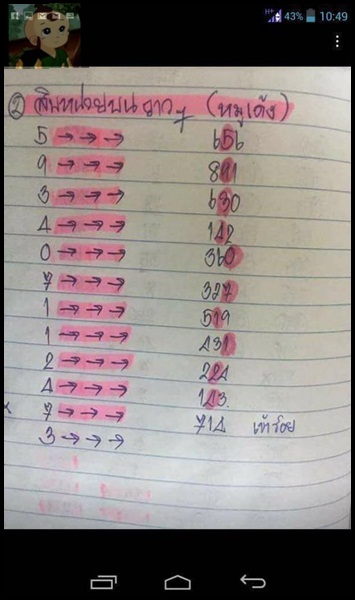 43% 10:49
② สิบหน่วยบน ลาว 7 (หมูเด้ง)
5 →→→ 656
9 →→→ 891
3 →→→ 630
4 →→→ 142
0 →→→ 360
7 →→→ 327
1 →→→ 519
1 →→→ 431
2 →→→ 224
4 →→→ 143
7 →→→ 714 เข้าร้อย
3 →→→